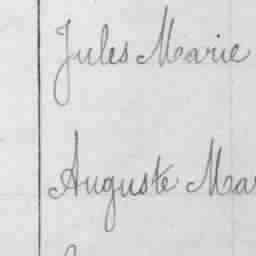 Jules Marie
Auguste Mar